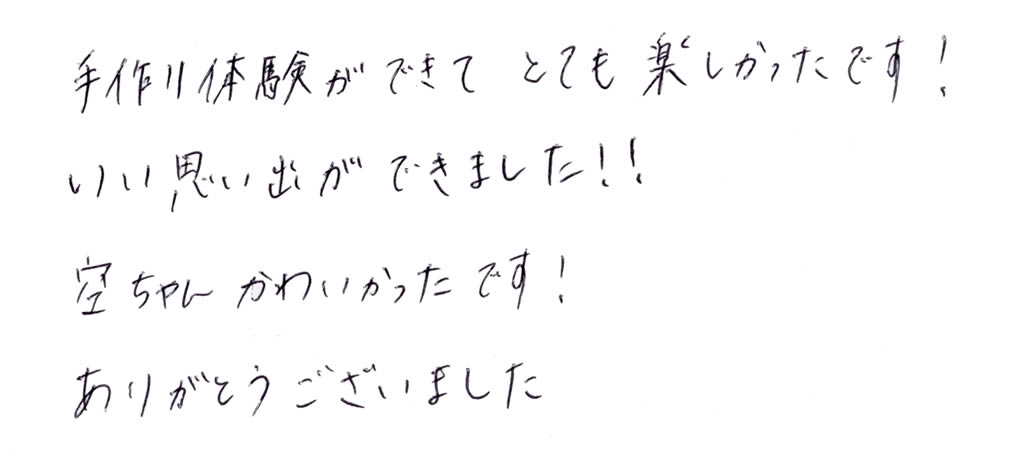 手作り体験ができて とても楽しかったです!
いい思い出ができました!!
空ちゃん かわいかったです!
ありがとうございました